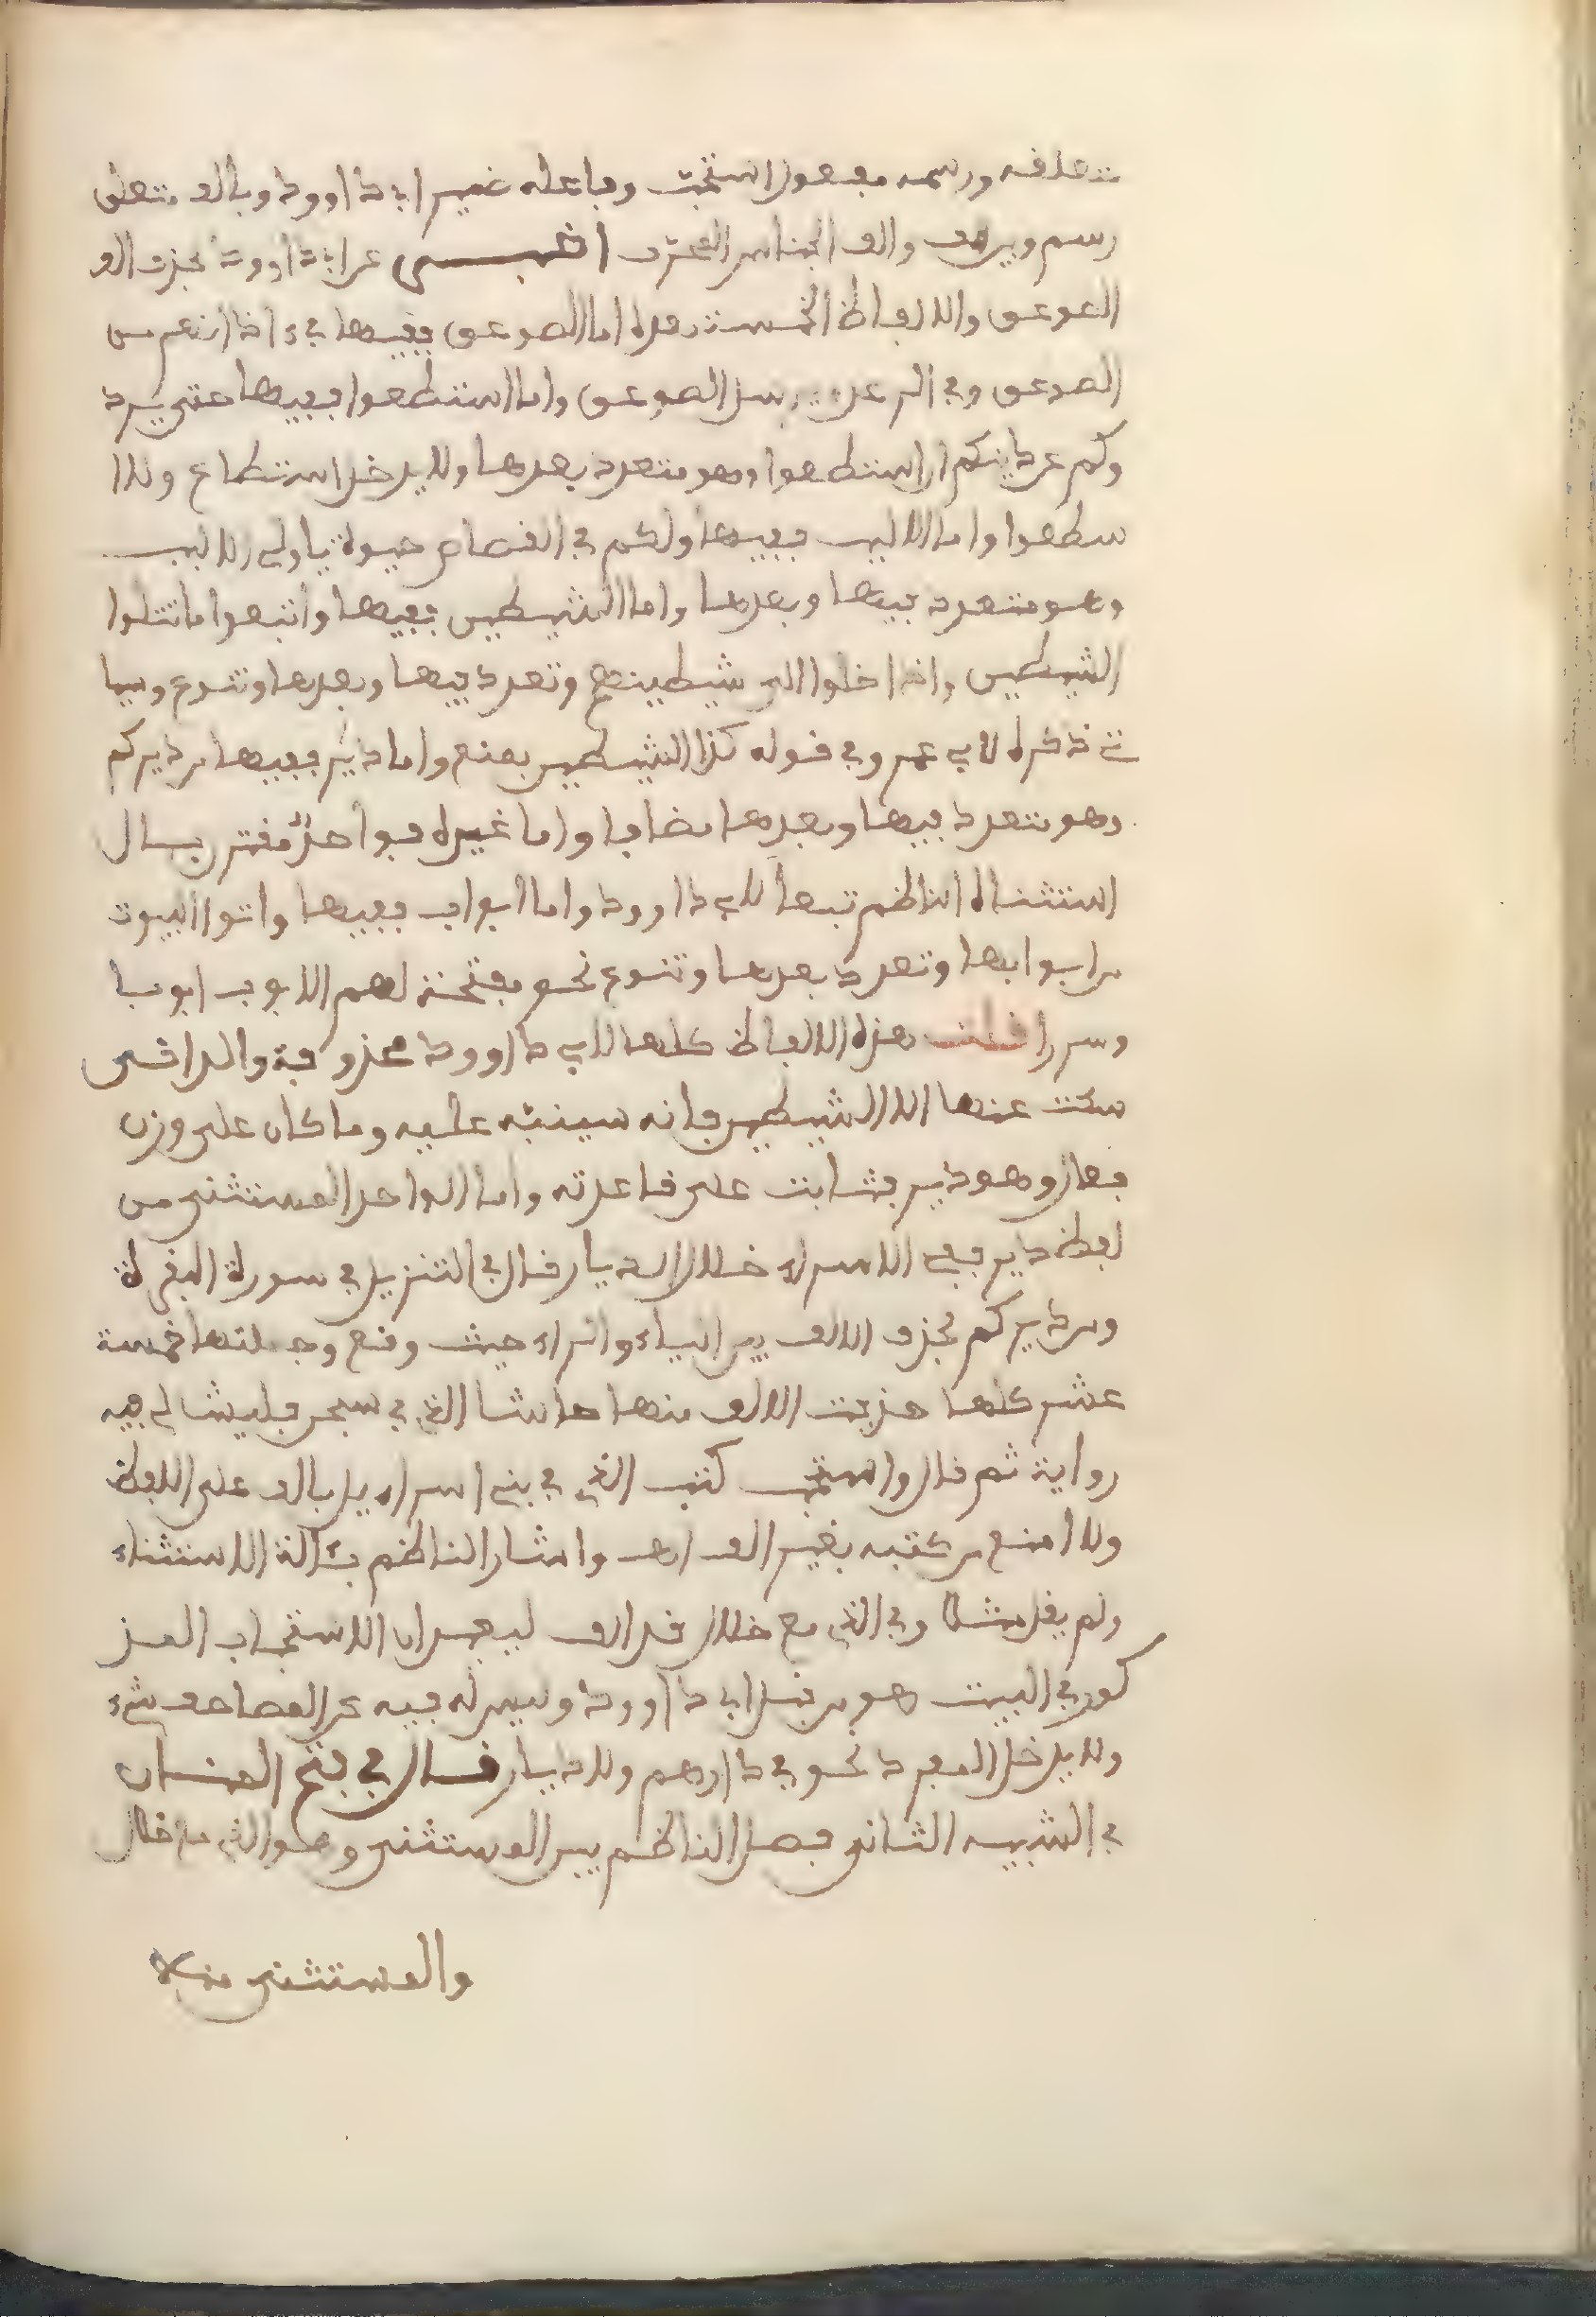 متعلقه ورسمه مفعول استحب وفاعله ضمير ابي داوود وبالف متعلق
رسم ويرهف والف الجناس المحرف اخبر عن ابي داوود بحذف الف
الصوعق والالفاظ الخمسة بعده اما الصوعق ففيها في ءاذانهم من
الصوعق وفي الرعد ويرسل الصوعق واما استطعوا ففيها حتى يرد
وكم عن دينكم ان استطعوا وهو متعدد بعدها ولا يدخل استطاع ولا
سطعوا واما الالبب ففيها ولكم في القصاص حيوة ياولي الالبب
وهو متعدد فيها وبعدها واما الشيطين ففيها واتبعوا ما تتلوا
الشيطين واذا خلوا الى شيطينهم وتعدد فيها وبعدها وتنوع وسيا
تي ذكره لابي عمرو في قوله كذا الشيطين بمقنع واما ديار ففيها من ديركم
وهو متعدد فيها وبعدها مضافا واما غيره فواحد مقترن بال
استثناه الناظم تبعا لابي داوود واما ابواب ففيها واتوا البيوت
من ابوابها وتعدد بعدها وتنوع نحو مفتحة لهم الابوب ابوبا
وسررا قلت هذه الالفاظ كلها لابي داوود محذوفة والداني
سكت عنها الا الشيطين فانه سينبه عليه وما كان على وزن
فعال وهو ديار فثابت على قاعدته واما الواحد المستثنى من
لفظ ديار ففي الاسراء خلال الديار قال في التنزيل في سورة البقرة
ومن ديركم بحذف الالف بين الياء والراء حيث وقع وجملتها خمسة
عشر كلها حذفت الالف منها حاشا الذي في سبحن فليس لي فيه
رواية ثم قال واستحب كتب الذي في بني اسراءيل بالف على اللفظ
ولا امنع من كتبه بغير الف اهـ واشار الناظم بئالة الاستثناء
ولم يقل مثلا وفي الذي مع خلال قد الف ليفيد ان الاستحباب المذ
كور في البيت هو من قبل ابي داوود وليس له فيه عن المصاحف شيء
ولا يدخل المفرد نحو في دارهم ولا ديار قال في فتح المنان
في التنبيه الثاني فصل الناظم بين المستثنى وهو الذي مع خلال
والمستثنى منه